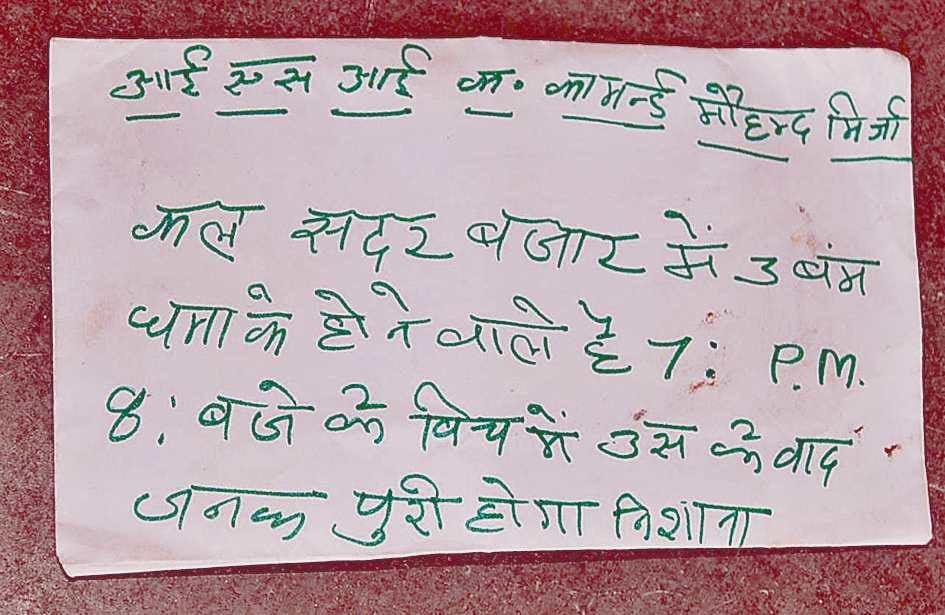 आई एस आई क. कामन्ड मौहम्द मिर्जा
कल सदर बजार में 3 बंम
धमाके होने वाले है 7: P.M.
8: बजे के बिच में उस के बाद
जनक पुरी होगा निशाना